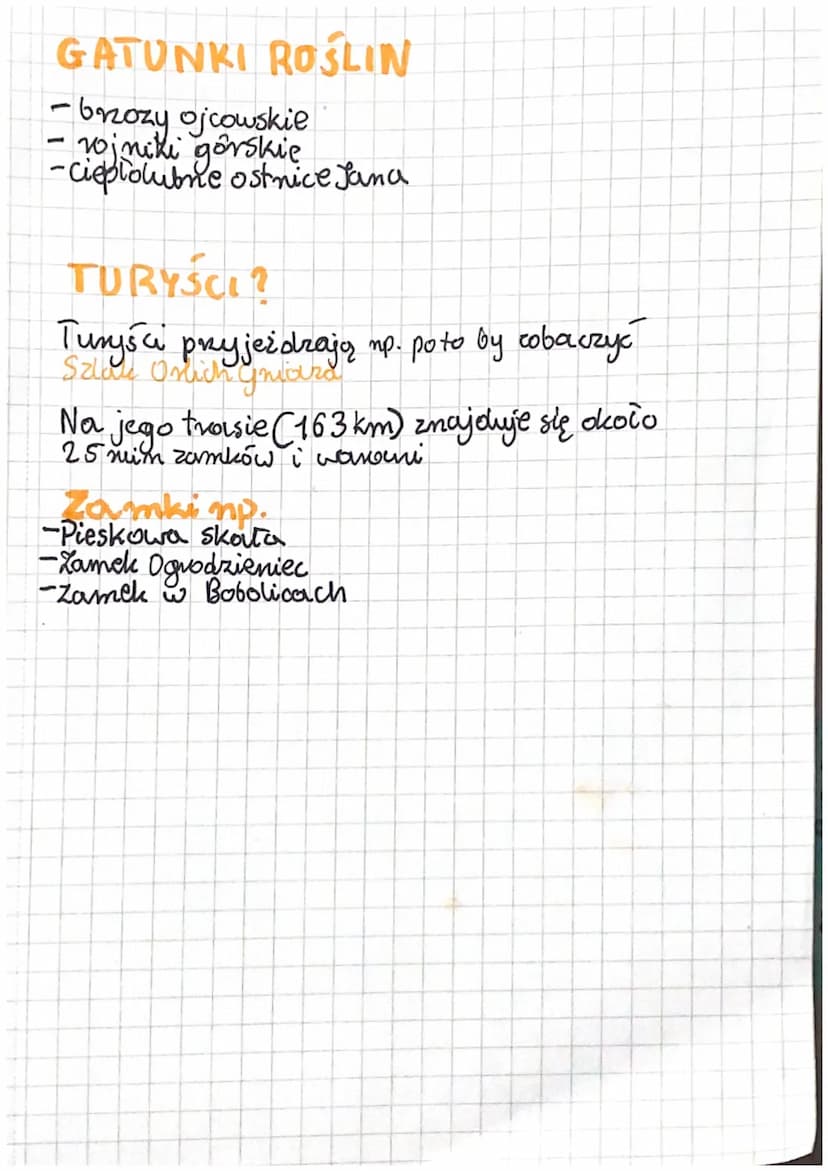 GATUNKI ROŚLIN
- brzozy ojcowskie
- rojniki górskie
- ciepłolubne ostnice Jana
TURYŚCI?
Turyści przyjeżdzają np. poto by zobaczyć
Szlak Orlich Gniazd
Na jego trasie (163 km) znajduje się około
25 ruin zamków i warowni
Zamki np.
-Pieskowa skała
-Zamek Ogrodzieniec
-Zamek w Bobolicach